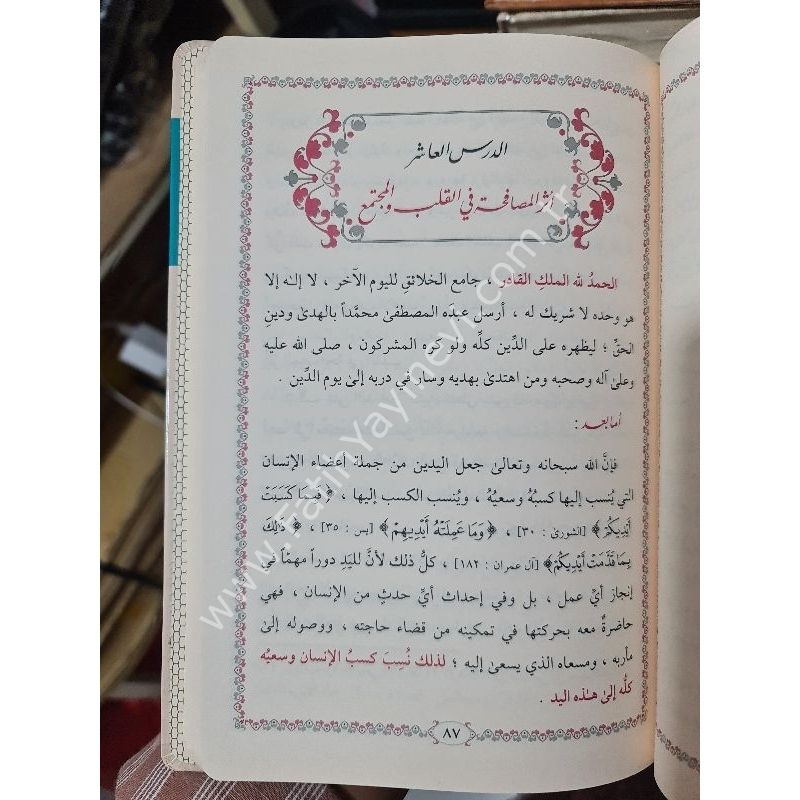 الدرس العاشر
أثر المصافحة في القلب والمجتمع
الحمدُ لله الملكِ القادر ، جامع الخلائقِ لليوم الآخر ، لا إلـٰه إلا
هو وحده لا شريك له ، أرسل عبدَه المصطفىٰ محمَّداً بالهدىٰ ودينِ
الحقِّ ؛ ليظهره على الدِّين كلِّه ولو كره المشركون ، صلى الله عليه
وعلىٰ آله وصحبه ومن اهتدىٰ بهديه وسار في دربه إلىٰ يوم الدِّين .
أما بعد :
فإنَّ الله سبحانه وتعالىٰ جعل اليدين من جملة أعضاء الإنسان
التي يُنسب إليها كسبُهُ وسعيُهُ ، ويُنسب الكسب إليها ، ﴿ فَبِمَا كَسَبَتْ
أَيْدِيكُمْ ﴾ [الشورىٰ : ٣٠] ، ﴿ وَمَا عَمِلَتْهُ أَيْدِيهِمْ ﴾ [يس : ٣٥] ، ﴿ ذَٰلِكَ
بِمَا قَدَّمَتْ أَيْدِيكُمْ ﴾ [آل عمران : ١٨٢] ، كلُّ ذلك لأنَّ لليَدِ دوراً مهمّاً في
إنجاز أيِّ عمل ، بل وفي إحداث أيِّ حدثٍ من الإنسان ، فهي
حاضرةٌ معه بحركتها في تمكينه من قضاء حاجته ، ووصوله إلىٰ
مأربه ، ومسعاه الذي يسعىٰ إليه ؛ لذلك نُسِبَ كسبُ الإنسان وسعيُه
كلُّه إلىٰ هـٰذه اليد .
٨٧
www.FatihYayinevi.com.tr